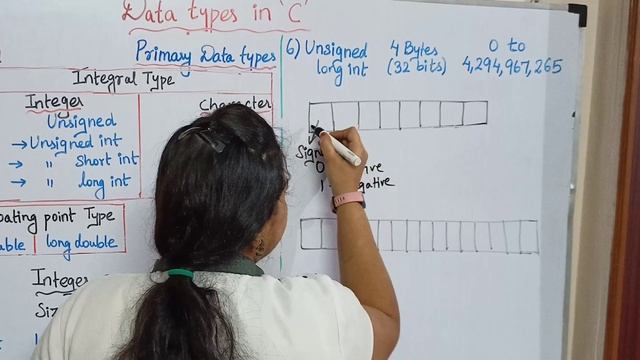 Data types in 'C'
Primary Data types
Integral Type
Integer
Character
Unsigned
→ Unsigned int
→ " short int
→ " long int
Type
long double
6) Unsigned long int
4 Bytes (32 bits)
0 to 4,294,967,265
Sign
0
1